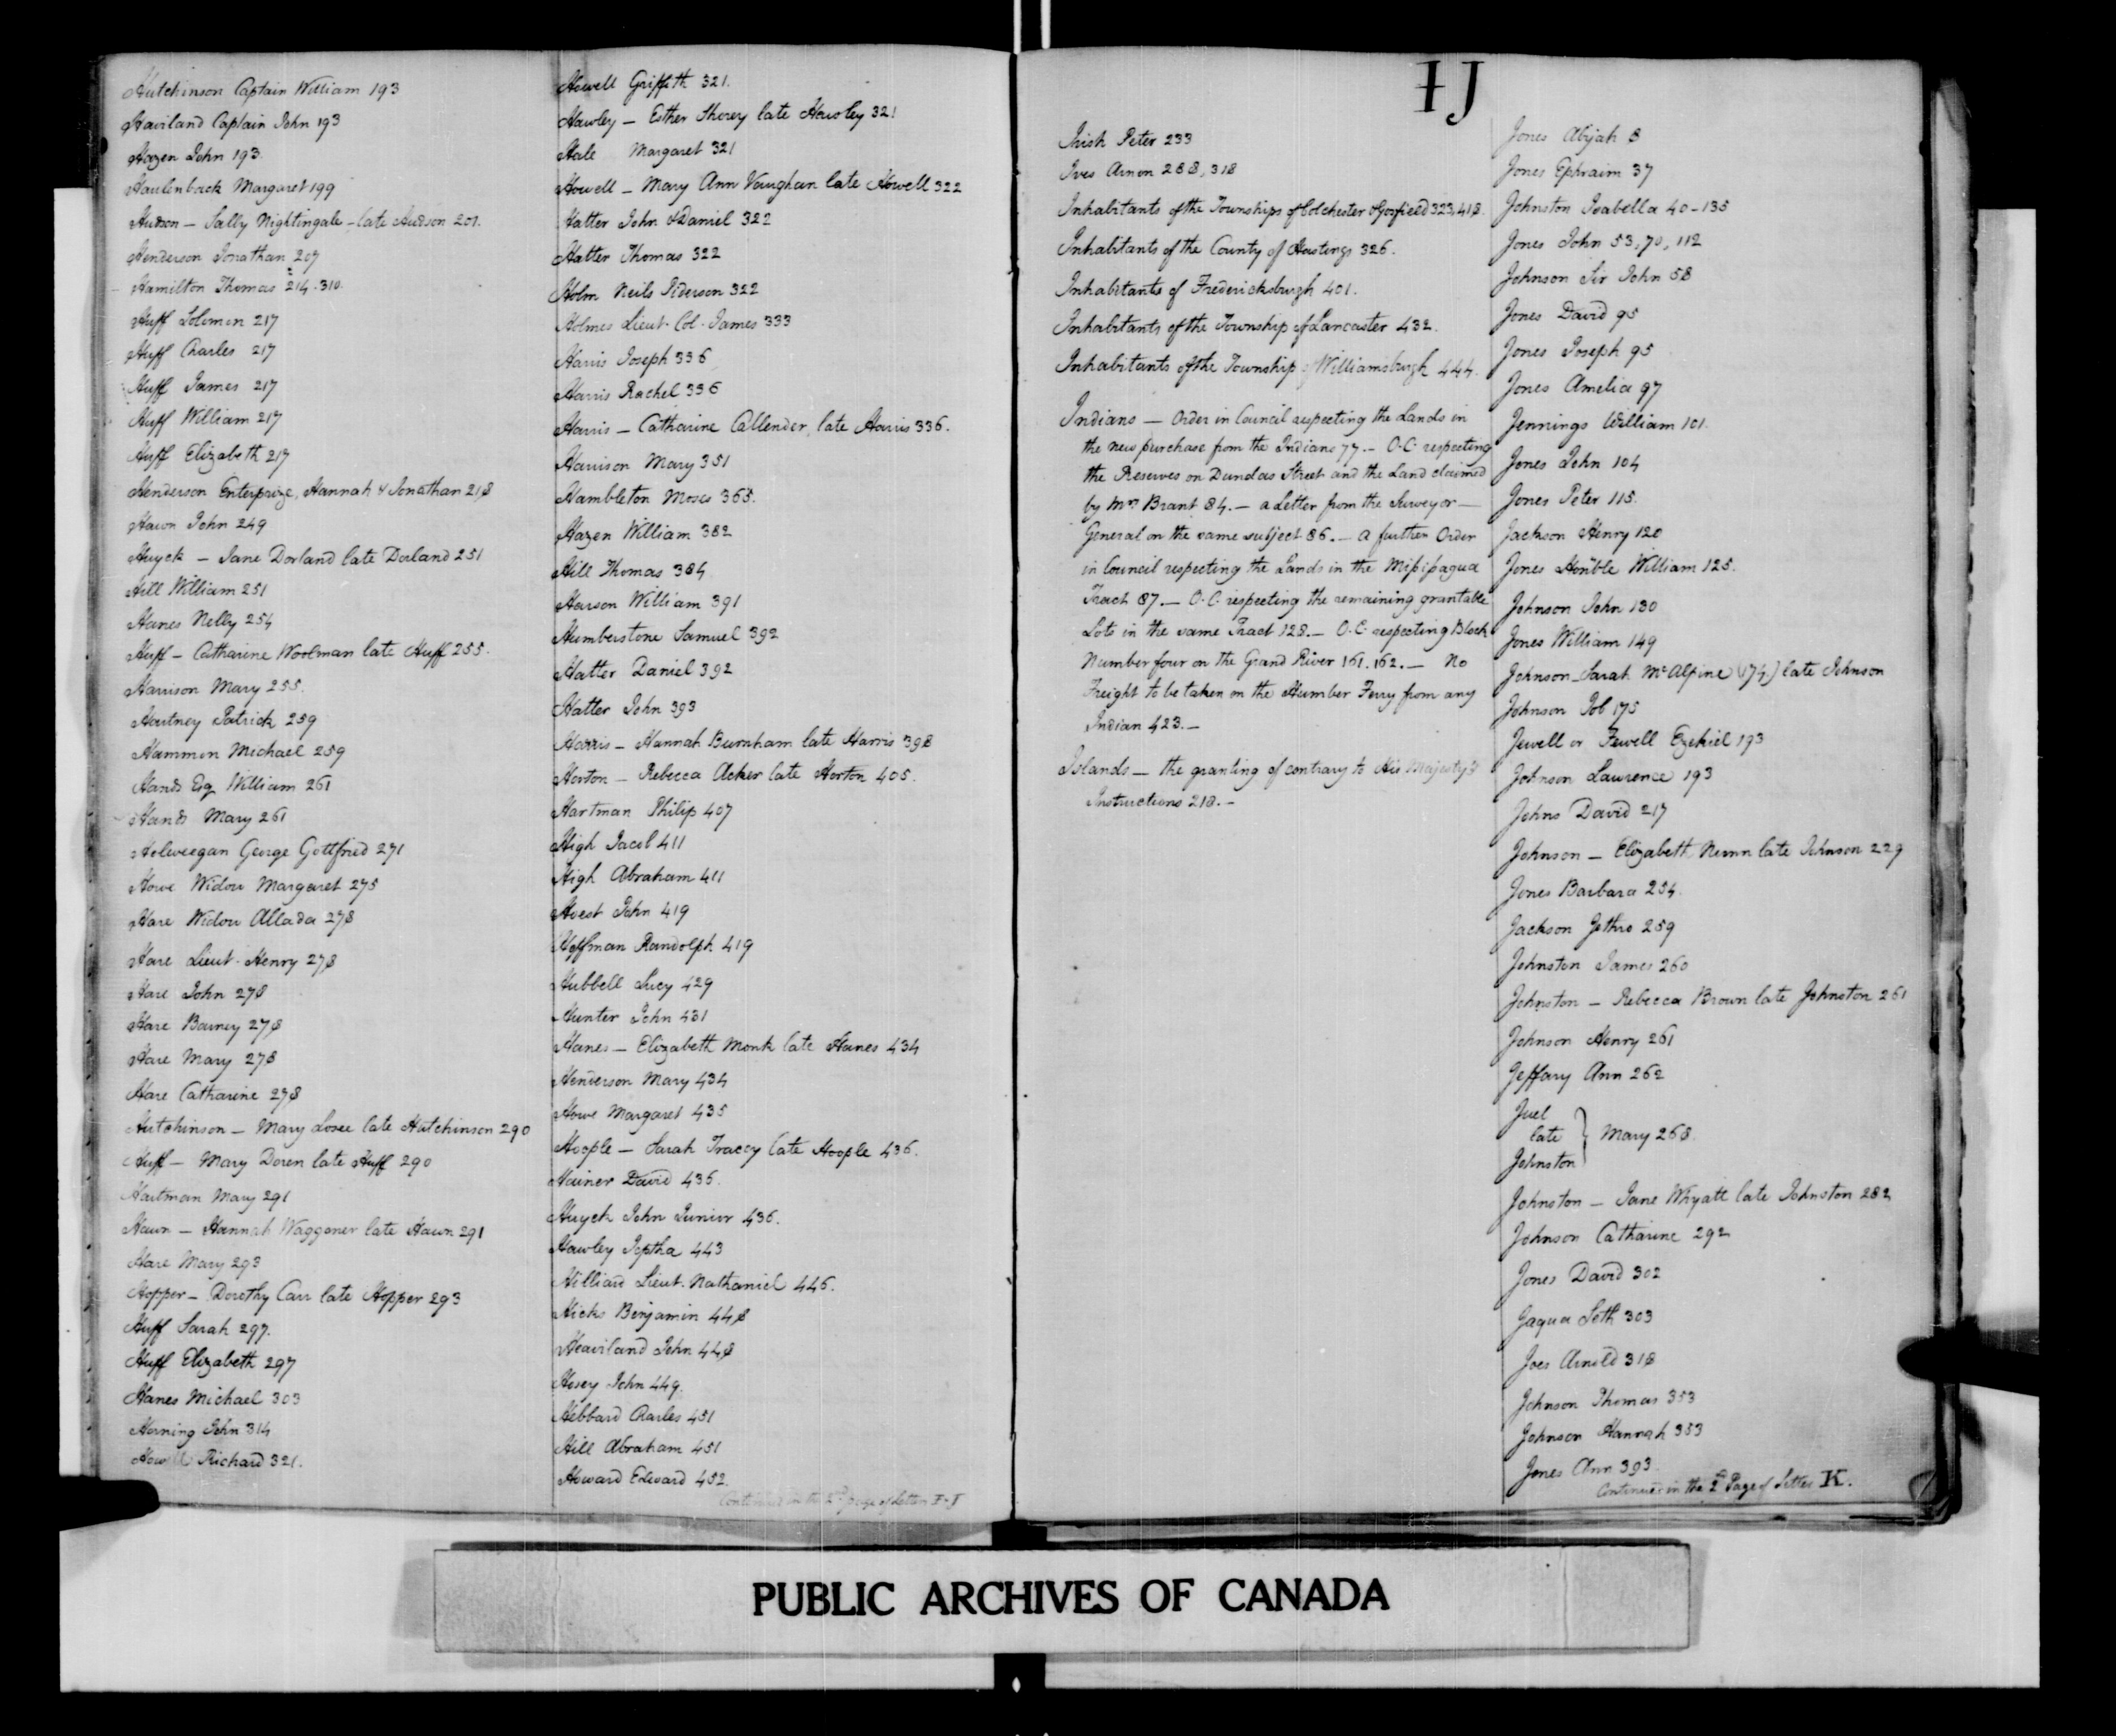 Hutchinson Captain William 193
Haviland Captain John 193
Hazen John 193.
Haulenback Margaret 199
Hudson – Sally Nightingale – late Hudson 201.
Henderson Jonathan 207
Hamilton Thomas 214.310.
Huff Solomon 217
Huff Charles 217
Huff James 217
Huff William 217
Huff Elizabeth 217
Henderson Enterprize, Hannah & Jonathan 218
Hawn John 249
Huyck – Jane Dorland late Dorland 251
Hill William 251
Hanes Nelly 254
Huff – Catharine Woolman late Huff 255.
Harrison Mary 255.
Hourtney Patrick 259
Hammon Michael 259
Hands Esq William 261
Hands Mary 261
Holweegan George Gottfried 271
Howe Widow Margaret 275
Hare Widow Allada 278
Hare Lieut. Henry 278
Hare John 278
Hare Barney 278
Hare Mary 278
Hare Catharine 278
Hutchinson – Mary Losee late Hutchinson 290
Huff – Mary Doren late Huff 290
Hartman Mary 291
Hawn – Hannah Waggoner late Hawn 291
Hare Mary 293
Hopper – Dorothy Carr late Hopper 293
Huff Sarah 297.
Huff Elizabeth 297
Hanes Michael 303
Horning John 314
Howell Richard 321.
Howell Griffith 321.
Hawley – Esther Shorey late Hawley 321
Hale Margaret 321
Howell – Mary Ann Vaughan late Howell 322
Hatter John & Daniel 322
Hatter Thomas 322
Holm Neils Piderson 322
Holmes Lieut. Col. James 333
Harris Joseph 336
Harris Rachel 336
Harris – Catharine Callender, late Harris 336.
Harrison Mary 351
Hambleton Moses 365.
Hazen William 382
Hill Thomas 384
Harson William 391
Humberstone Samuel 392
Hatter Daniel 392
Hatter John 393
Harris – Hannah Burnham late Harris 398
Horton – Rebecca Acker late Horton 405.
Hartman Philip 407
High Jacob 411
High Abraham 411
Hoest John 419
Hoffman Randolph 419
Hubbell Lucy 429
Hunter John 431
Hanes – Elizabeth Monk late Hanes 434
Henderson Mary 434
Howe Margaret 435
Hoople – Sarah Tracey late Hoople 436.
Hainer David 436.
Huyck John Junior 436.
Hawley Jeptha 443
Hilliard Lieut. Nathaniel 446.
Hicks Benjamin 448
Heaviland John 448
Hosey John 449.
Hebbard Charles 451
Hill Abraham 451
Howard Edward 452.
Continued in the 2d page of Letter I-J
IJ
Irish Peter 233
Ives Arnon 288, 318
Inhabitants of the Townships of Colchester & Gosfield 323, 418.
Inhabitants of the County of Hastings 326.
Inhabitants of Fredericksburgh 401.
Inhabitants of the Township of Lancaster 432.
Inhabitants of the Township of Williamsburgh 444.
Indians – Order in Council respecting the Lands in
the new purchase from the Indians 77. – O.C. respecting
the Reserves on Dundas Street and the Land claimed
by Mrs Brant 84. – a Letter from the Surveyor –
General on the same subject 86. – a further Order
in Council respecting the Lands in the Missisagua
Tract 87. – O.C. respecting the remaining grantable
Lots in the same Tract 128. – O.C. respecting Block
Number four on the Grand River 161.162. – No
Freight to be taken on the Humber Ferry from any
Indian 423. –
Islands – the granting of contrary to His Majesty's
Instructions 218. –
Jones Abijah 8
Jones Ephraim 37
Johnston Isabella 40 – 135
Jones John 53, 70, 112
Johnson Sir John 58
Jones David 95
Jones Joseph 95
Jones Amelia 97
Jennings William 101.
Jones John 104
Jones Peter 115.
Jackson Henry 120
Jones Honble William 125.
Johnson John 130
Jones William 149
Johnson – Sarah McAlpine (174) late Johnson
Johnson Job 175
Jewell or Fewell Ezekiel 193
Johnson Lawrence 193
Johns David 217
Johnson – Elizabeth Nunn late Johnson 229
Jones Barbara 254.
Jackson Jethro 259
Johnston James 260
Johnston – Rebecca Brown late Johnston 261
Johnson Henry 261
Jeffary Ann 262
Juel
late } Mary 268.
Johnston
Johnston – Jane Whyatt late Johnston 282
Johnson Catharine 292
Jones David 302
Jaqua Seth 303
Joes Arnold 318
Johnson Thomas 353
Johnson Hannah 353
Jones Ann 393.
Continued in the 2d Page of Letter K.
PUBLIC ARCHIVES OF CANADA